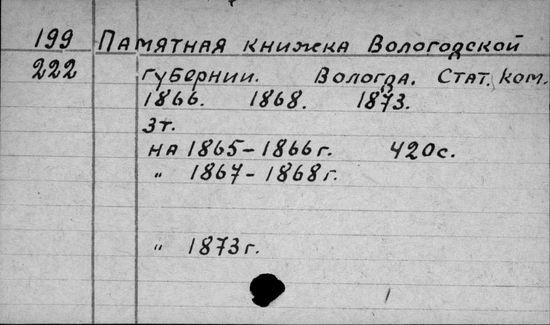 199 Памятная книжка Вологодской
222 губернии. Вологда. Стат. ком.
1866. 1868. 1873.
3т.
на 1865-1866г. 420с.
„ 1867-1868г.
„ 1873г.